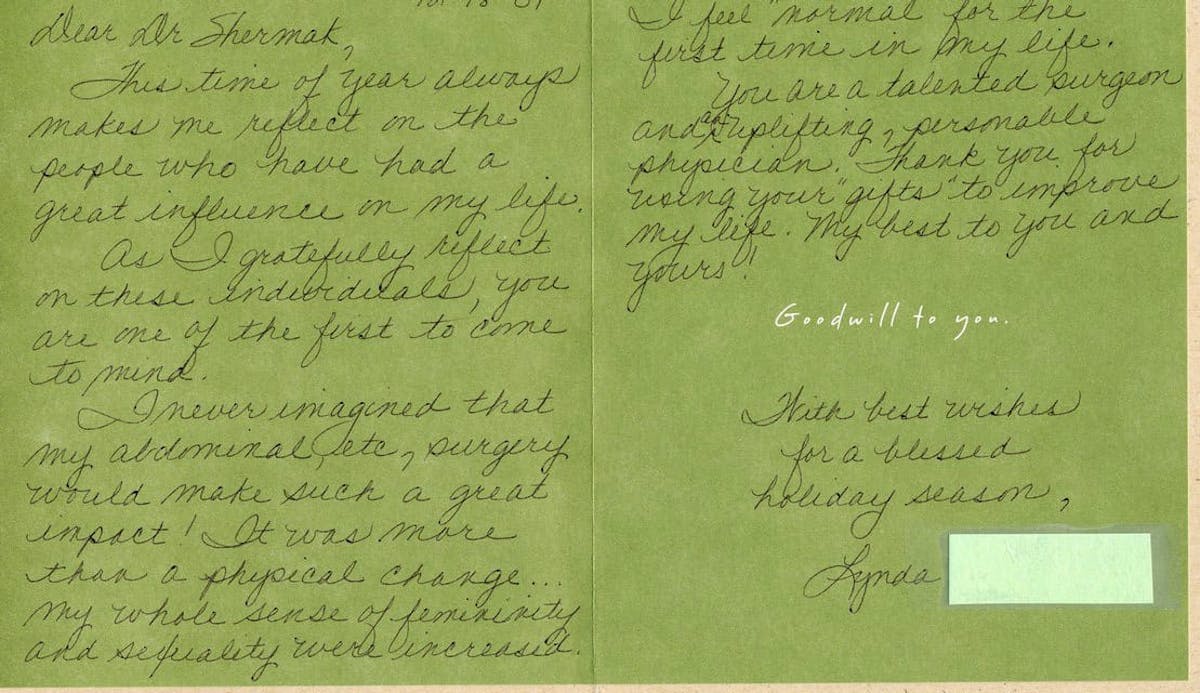 Dear Dr Shermak,
This time of year always
makes me reflect on the
people who have had a
great influence on my life.
As I gratefully reflect
on these individuals, you
are one of the first to come
to mind.
I never imagined that
my abdominal, etc, surgery
would make such a great
impact! It was more
than a physical change...
my whole sense of femininity
and sexuality were increased.
I feel "normal" for the
first time in my life.
You are a talented surgeon
and an uplifting, personable
physician. Thank you for
using your "gifts" to improve
my life. My best to you and
yours!
Goodwill to you.
With best wishes
for a blessed
holiday season,
Lynda